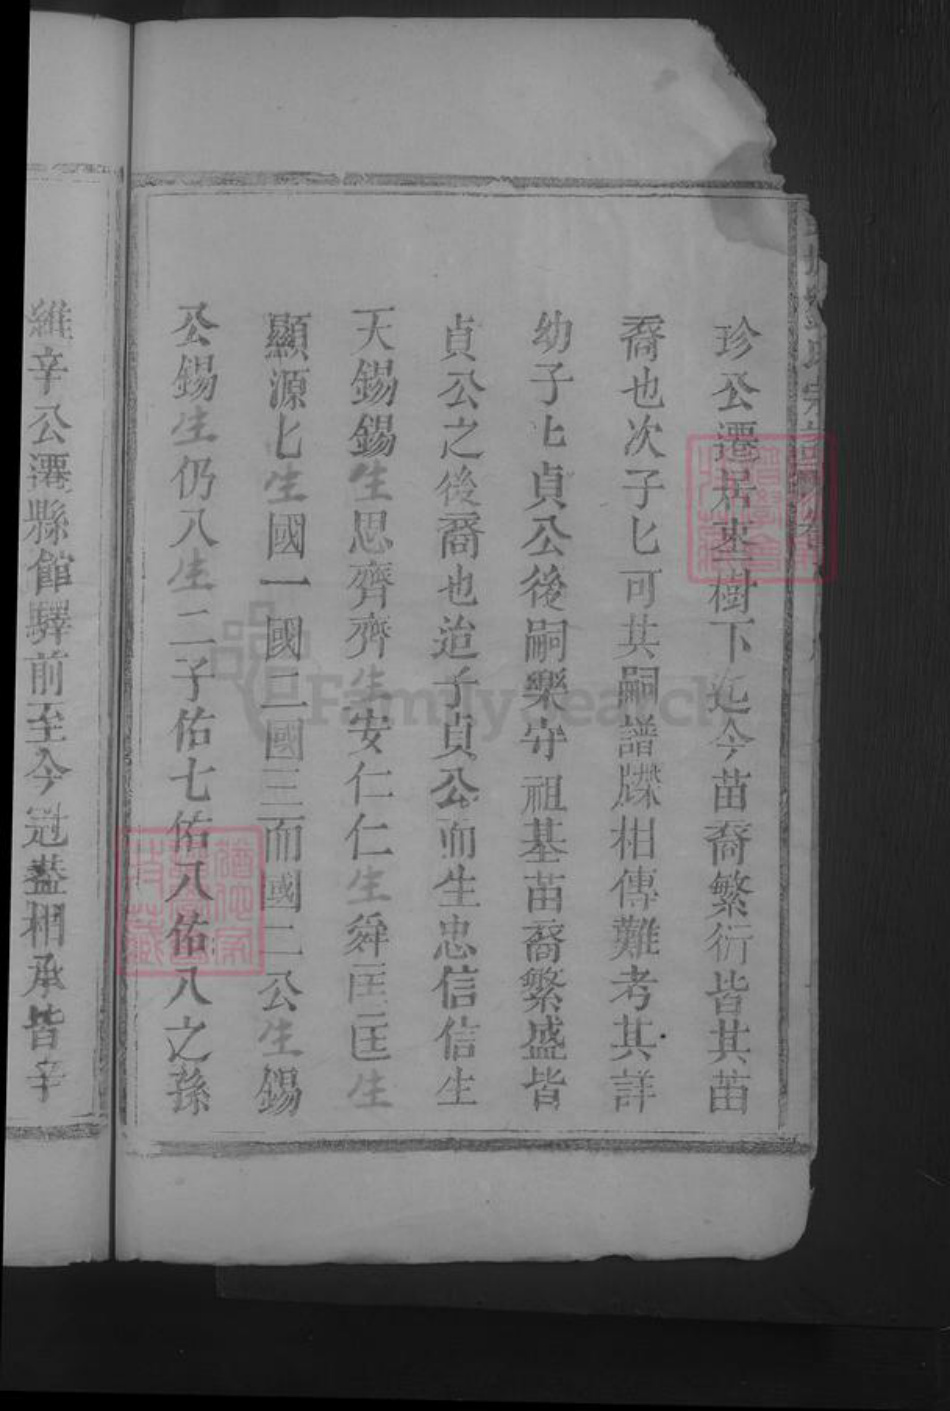 珍公遷居埜樹下迄今苗裔繁衍皆其苗
裔也次子匕可其嗣譜牒相傳難考其詳
幼子匕貞公後嗣樂守祖基苗裔繁盛皆
貞公之後裔也迨子貞公而生忠信信生
天錫錫生思齊齊生安仁仁生舜匡匡生
顯源匕生國一國二國三而國二公生錫
公錫生仍八生二子佑七佑八佑八之孫
維辛公遷縣館驛前至今冠葢相承皆辛
FamilySearch